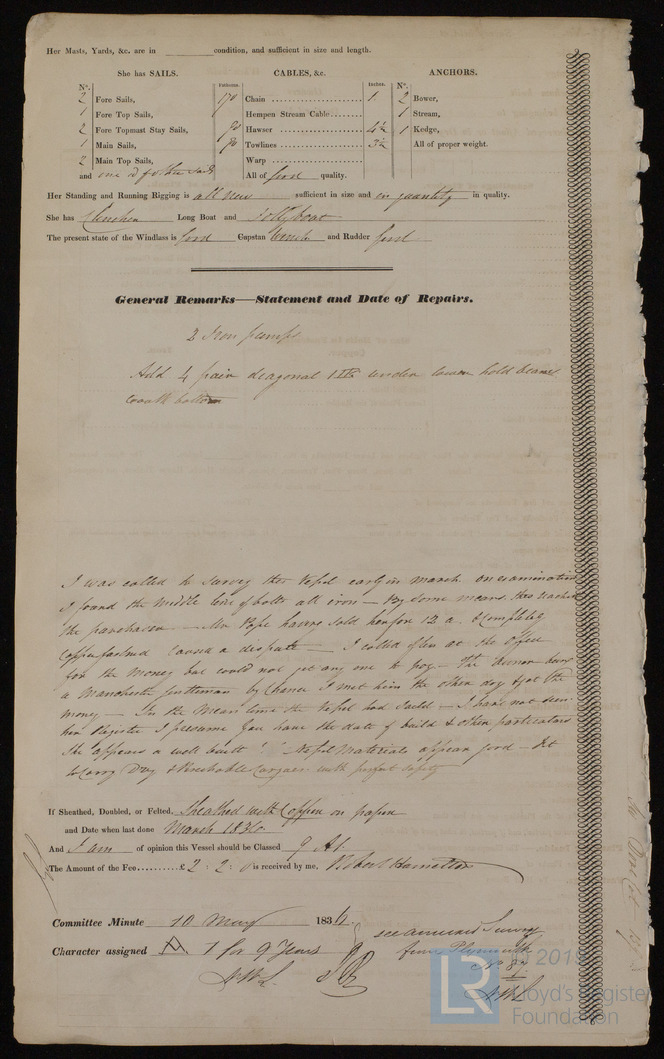 Her Masts, Yards, &c. are in condition, and sufficient in size and length.
She has SAILS. CABLES, &c. ANCHORS.
N°. Fathoms. Inches. N°.
2 Fore Sails, 170 Chain 1 2 Bower,
1 Fore Top Sails, Hempen Stream Cable 1 Stream,
2 Fore Topmast Stay Sails, 90 Hawser 4½ 1 Kedge,
1 Main Sails, 90 Towlines 3½ All of proper weight.
2 Main Top Sails, Warp
and one of other sails All of good quality.
Her Standing and Running Rigging is all new sufficient in size and in quantity in quality.
She has Clencher Long Boat and Jollyboat
The present state of the Windlass is good Capstan Winch and Rudder good
General Remarks—Statement and Date of Repairs.
2 Iron pumps
Add 4 pair diagonal under lower hold beams
bolts
I was called to survey this Vessel early in March on examination
I found the middle line of bolts all iron — By some means this reached
the purchaser — Mr Pope having sold her for 12 a. & Completely
Copper fastned Caused a dispute — I called often at the Office
for the money but could not get any one to pay — The owner being
a Manchester gentleman by Chance I met him the other day & got the
money — In the mean time the Vessel had Saild — I have not seen
her Register I presume you have the date of build & other particulars
She appears a well built Vessel Materials appear good — fit
to Carry Dry & Perishable Cargoes with perfect safety
If Sheathed, Doubled, or Felted, Sheathed with Copper on paper
and Date when last done March 1836
And I am of opinion this Vessel should be Classed 9 A1
The Amount of the Fee £2 : 2 : 0 is received by me, Robert Hamilton
Committee Minute 10 May 1836
see annual Survey
from Plymouth
Character assigned A 1 for 9 Years
N° 87
LR
© 2019
Lloyd's Register
Foundation